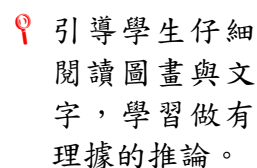 引導學生仔細
閱讀圖畫與文
字，學習做有
理據的推論。